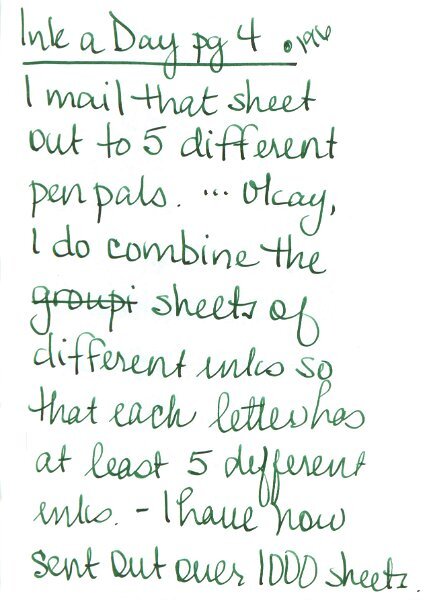 Ink a Day pg 4
I mail that sheet
out to 5 different
pen pals. ... Okay,
I do combine the
groupi sheets of
different inks so
that each letter has
at least 5 different
inks. - I have now
sent out over 1000 sheets.